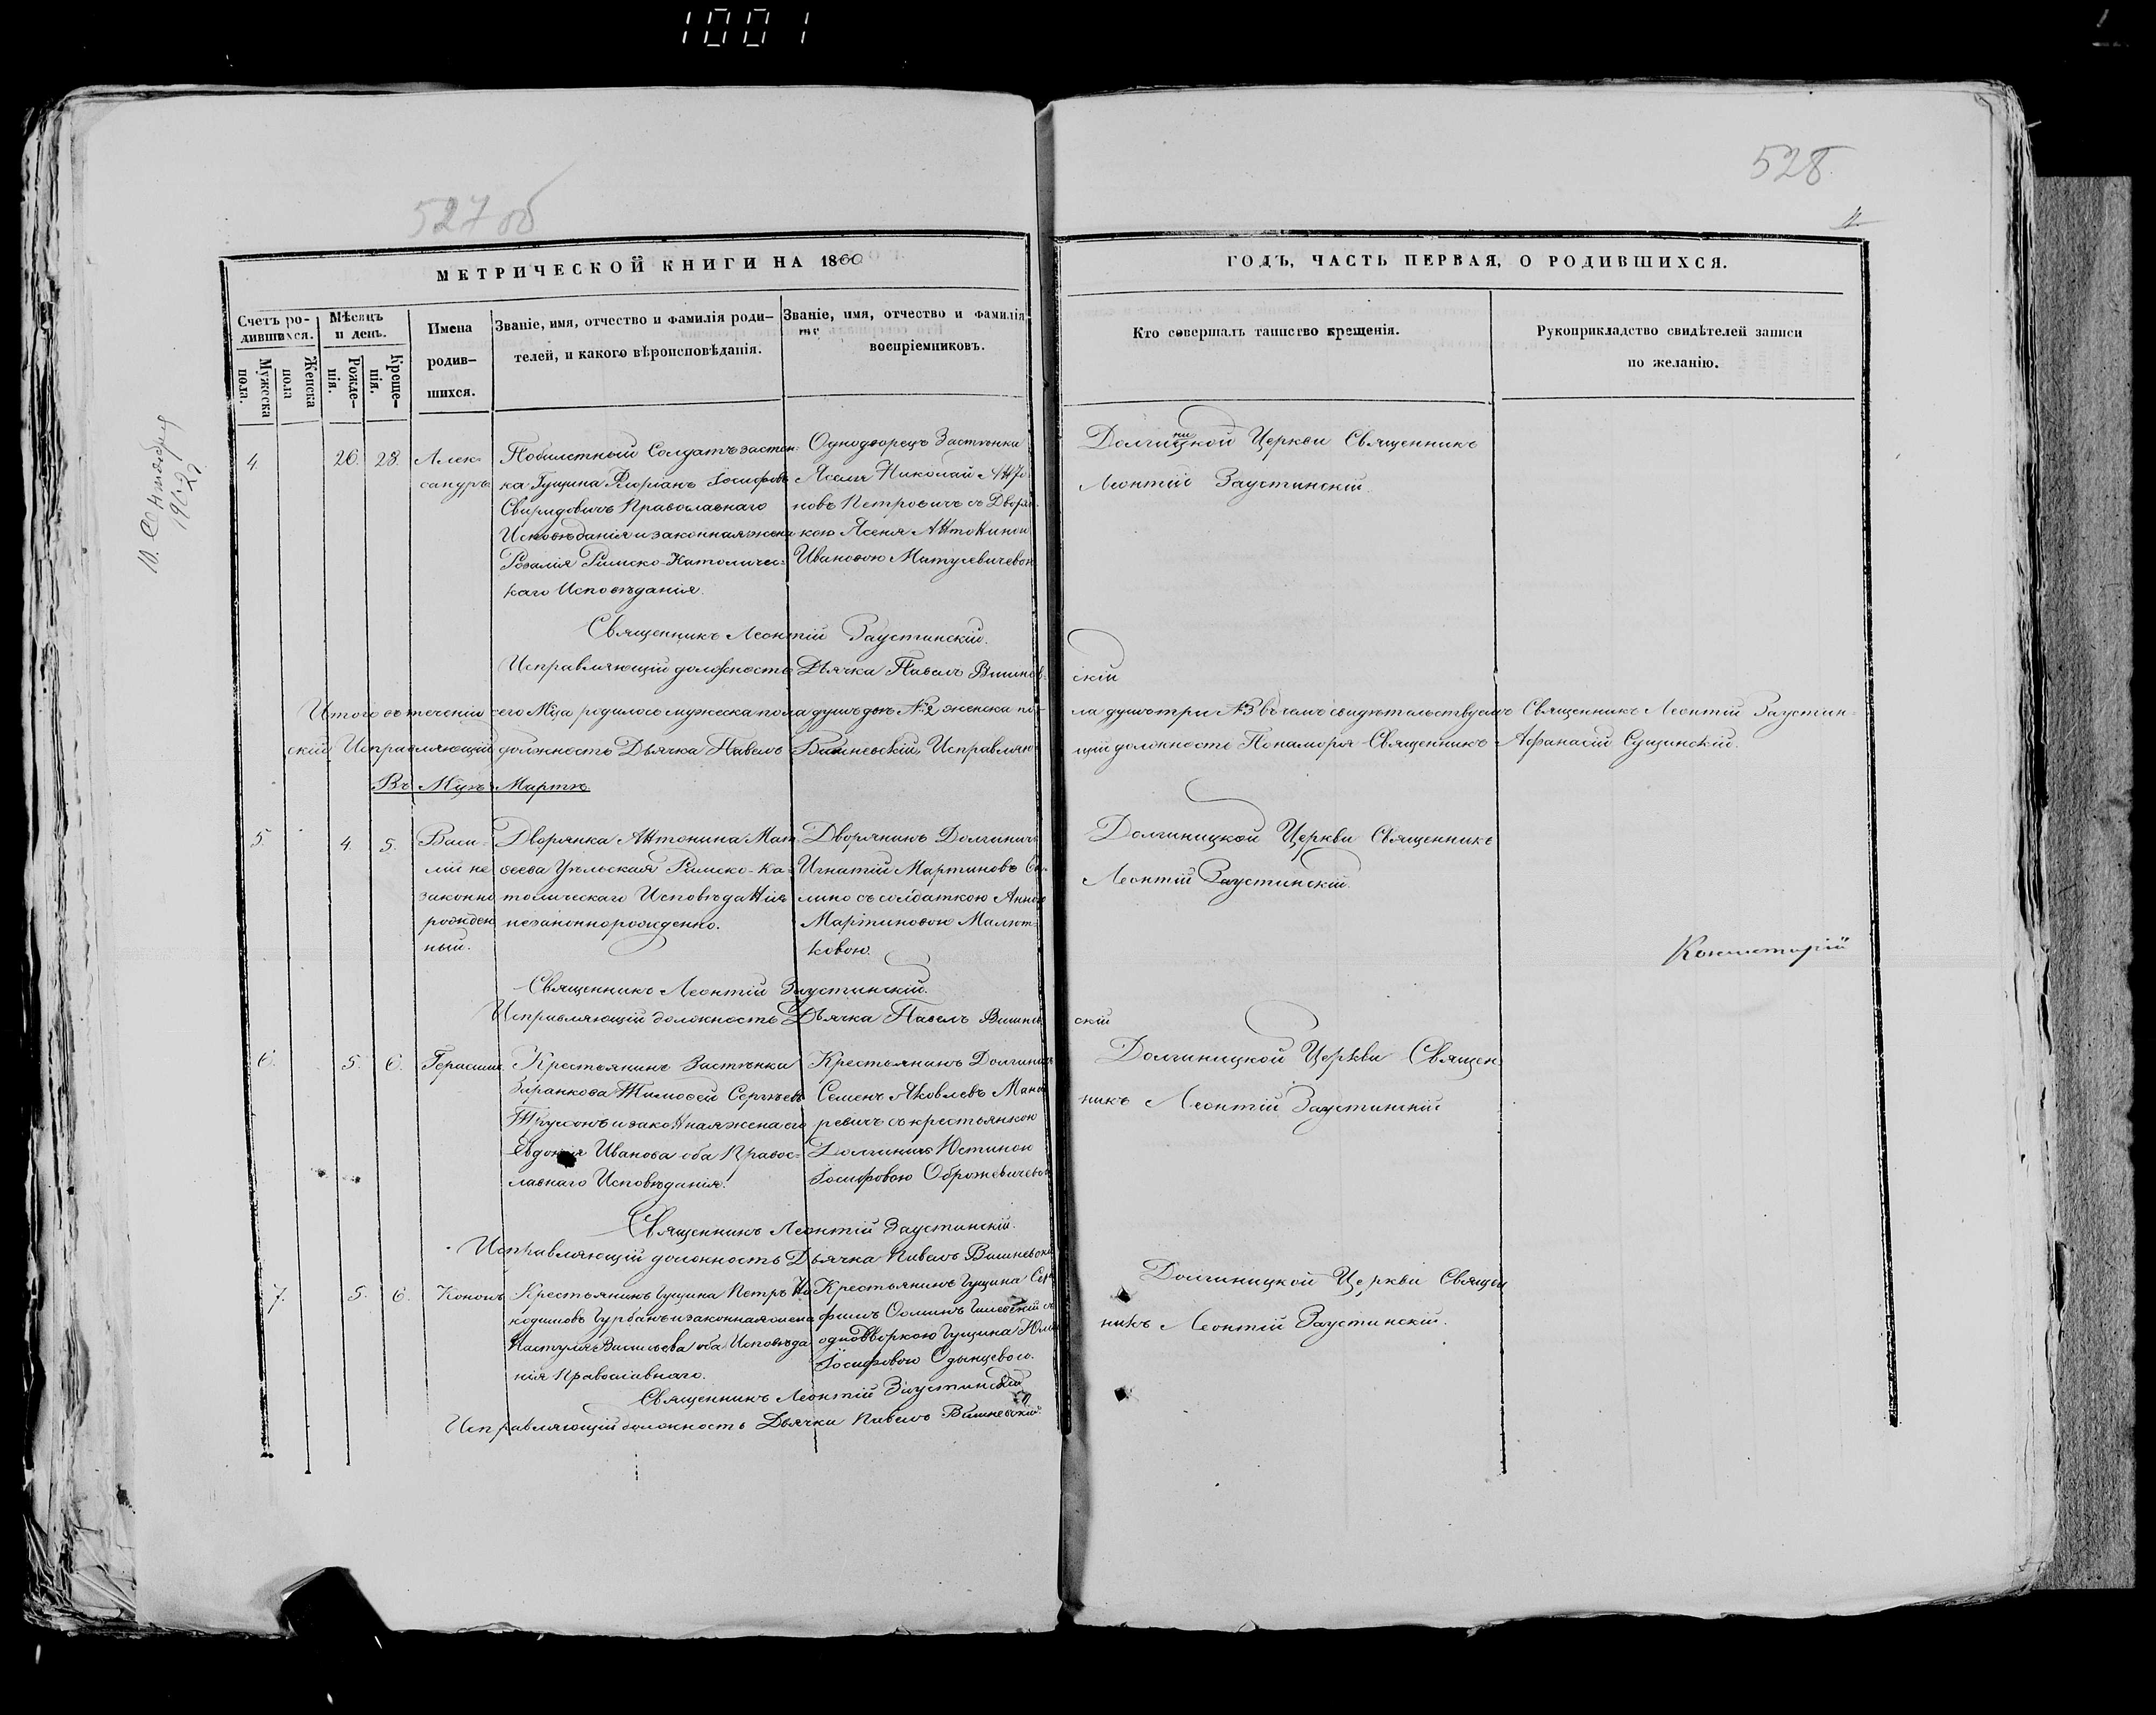 1001
527 об
528
МЕТРИЧЕСКОЙ КНИГИ НА 1860
ГОДЪ, ЧАСТЬ ПЕРВАЯ, О РОДИВШИХСЯ.
Счетъ ро-
дившихся.
Мужеска
пола.
Женска
пола
Мѣсяцъ
и день.
Рожде-
нія.
Креще-
нія.
Имена
родив-
шихся.
Званіе, имя, отчество и фамилія роди-
телей, и какого вѣроисповѣданія.
Званіе, имя, отчество и фамилія
воспріемниковъ.
Кто совершалъ таинство крещенія.
Рукоприкладство свидѣтелей записи
по желанію.
4
26. 28.
Алек-
сандръ
Побилетный Солдатъ застен-
ка Гущина Флоріанъ Іосифовъ
Свиридовичъ Православнаго
Исповѣданія и законная жена
Розалія Римско-Католичес-
каго Исповѣданія.
Однодворецъ Застѣнка
Николай
новъ Петровичъ съ Дворян-
кою Антониною
Ивановою Матусевичевою
Долгиницкой Церкви Священникъ
Леонтій Заустинскій.
Священникъ Леонтій Заустинскій.
Исправляющій должность Дьячка Павелъ Вишнев-
скій
Итого въ теченіи сего Мца родилось мужеска пола душъ двѣ №2 женска по-
ла душъ три №3 въ чемъ свидѣтельствуемъ Священникъ Леонтій Заустин-
скій Исправляющій должность Дьячка Павелъ Вишневскій Исправляю-
щій должность Понамаря Священникъ Афанасій Сущинскій.
Въ Мцѣ Мартѣ
5.
4. 5.
Васи-
лій не
законно
рожден
ный.
Дворянка Антонина Мат-
веева Римско-Ка-
толическаго Исповѣданія
незаконнорожденно.
Дворянинъ Долгиничъ
Игнатій Мартиновъ
лино съ солдаткою Анною
Мартиновою Малют-
ковою.
Долгиницкой Церкви Священникъ
Леонтій Заустинскій.
Священникъ Леонтій Заустинскій.
Исправляющій должность Дьячка Павелъ Вишнев-
скій
6.
5. 6.
Герасимъ
Крестьянинъ Застѣнка
Тимофей Сергѣевъ
и законная жена его
Евдокія Иванова оба Правос-
лавнаго Исповѣданія.
Крестьянинъ Долгиничъ
Семенъ Яковлевъ
ревичъ съ крестьянкою
Долгиничъ Юстиною
Іосифовою
Долгиницкой Церкви Священ-
никъ Леонтій Заустинскій
Священникъ Леонтій Заустинскій.
Исправляющій должность Дьячка Павелъ Вишневскій
7.
5. 6.
Кононъ
Крестьянинъ Гущина Петръ Ни-
кодимовъ Гурбанъ и законная жена
Настулія Васильева оба Исповѣда
нія Православнаго.
Крестьянинъ Гущина Сера-
фимъ съ
однодворкою Гущина
Іосифовою Одынцевою.
Долгиницкой Церкви Священ
никъ Леонтій Заустинскій.
Священникъ Леонтій Заустинскій
Исправляющій должность Дьячка Павелъ Вишневскій.